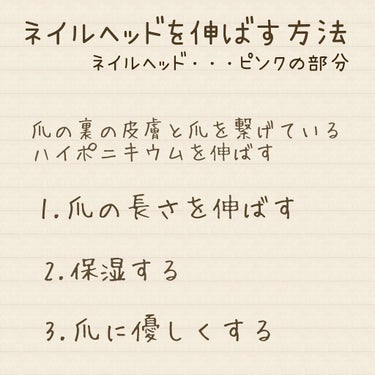 ネイルヘッドを伸ばす方法
ネイルヘッド・・・ピンクの部分
爪の裏の皮膚と爪を繋げている
ハイポニキウムを伸ばす
1.爪の長さを伸ばす
2.保湿する
3.爪に優しくする